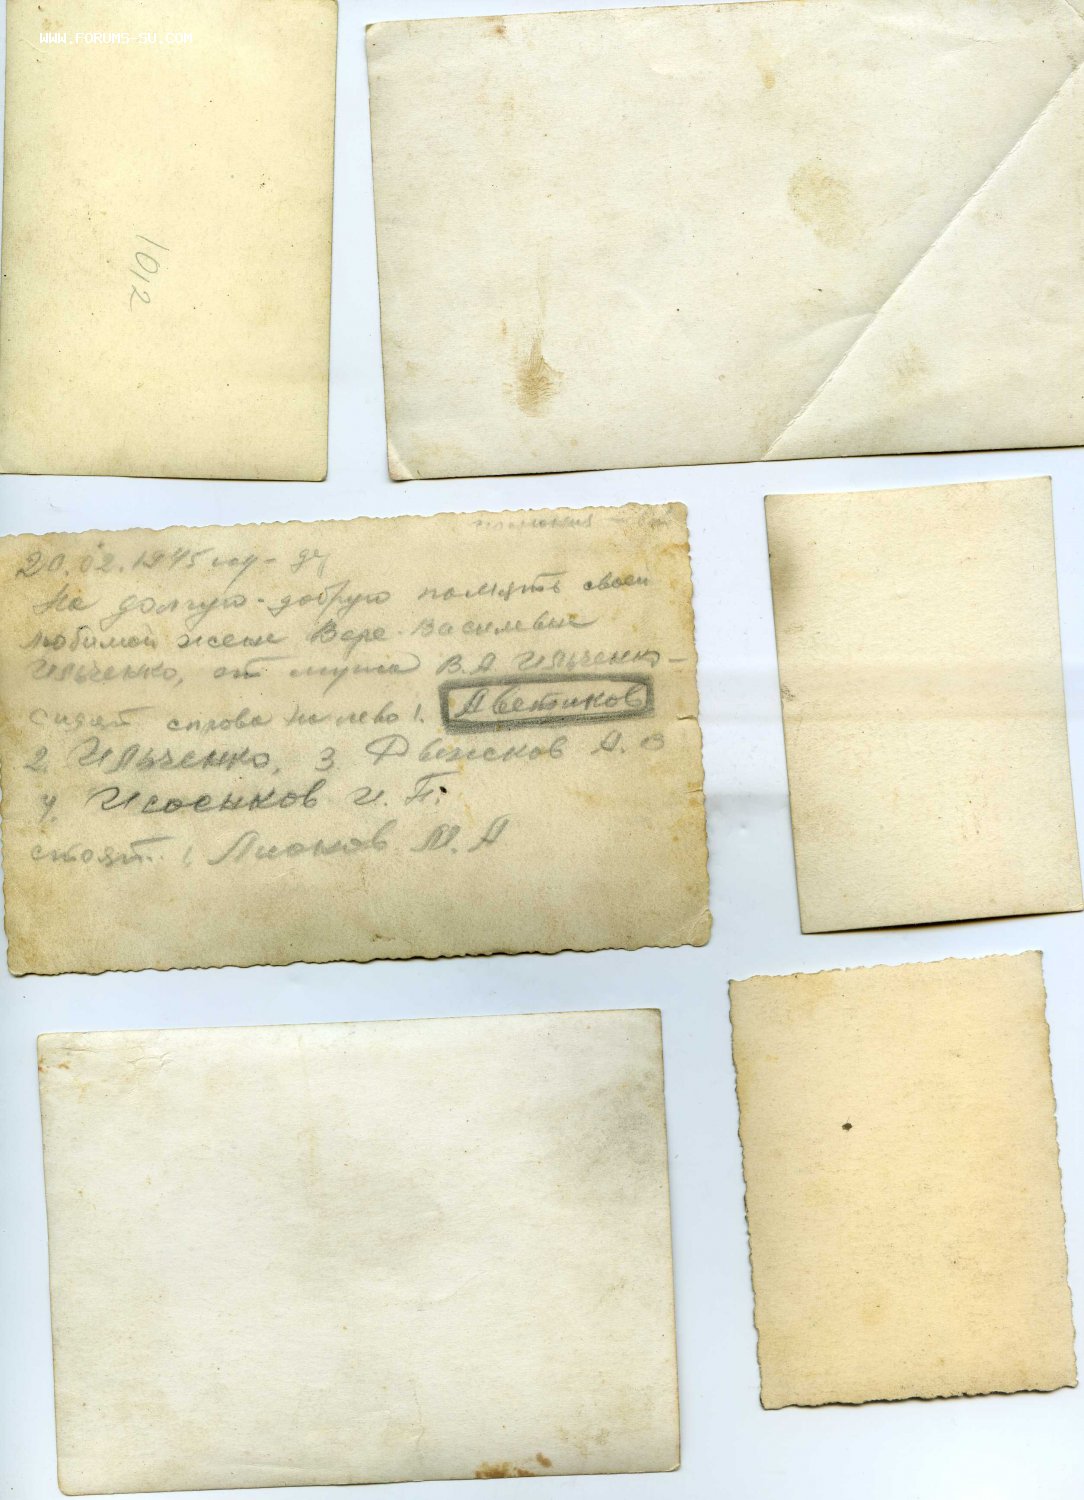 WWW.FORUMS-SU.COM
1012
20.02.1945
На долгую-добрую память своей
любимой жене Вере Васильевне
Ильченко, от мужа В.А Ильченко-
сидят справа на лево 1. Аветиков
2. Ильченко, 3. Рыжков А.В
4. Исаенков И.П.
стоят: 1 М.А